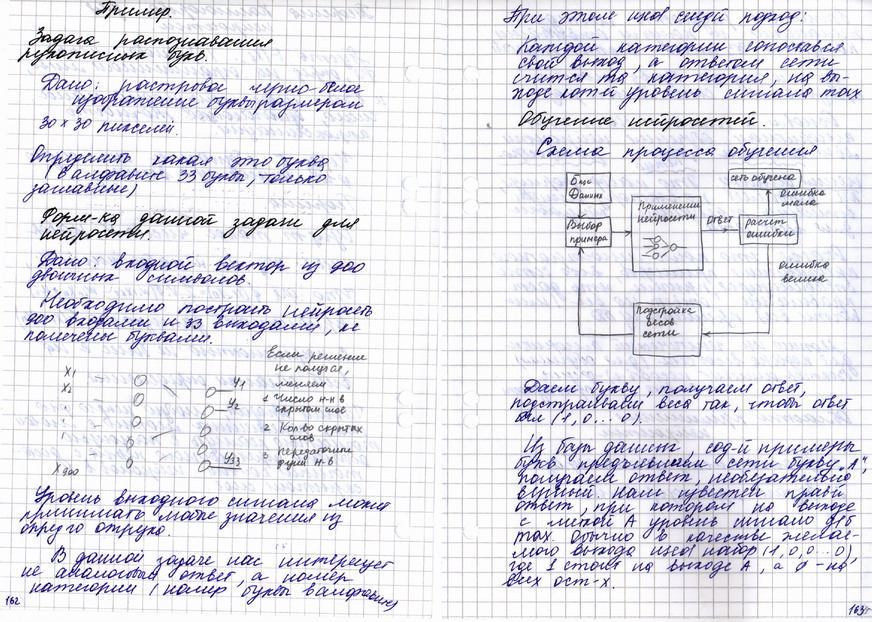 Пример.
Задача распознавания
рукописных букв.
Дано: растровое черно-белое
изображение буквы размером
30 × 30 пикселей.
Определить какая это буква
(в алфавите 33 буквы, только
заглавные)
Форм-ка данной задачи для
нейросети.
Дано: входной вектор из 900
двоичных символов.
Необходимо построить нейросеть
900 входами и 33 выходами,
помечены буквами.
X1
X2
X900
y1
y2
y33
Если решение
не получ,
меняем
1 Число н-н в
скрытом слое
2 Кол-во скрытых
слов
3 Передаточн
функ н-в
Уровень выходного сигнала может
принимать любые значения из
опред-го отрезка.
В данной задаче нас интересует
не аналоговый ответ, а номер
категории (номер буквы в алфавите)
162
При этом исп следй подход:
Каждой категории сопостався
свой выход, а ответом сети
счится та категория, на вы-
ходе котй уровень сигнала max
Обучение нейросетей.
Схема процесса обучения
База
Данных
Выбор
примера
Применение
нейросети
ответ
расчет
ошибки
сеть обучена
ошибка
мала
ошибка
велика
Подстройка
весов
сети
Даем букву, получаем ответ,
подстраиваем веса так, чтобы ответ
был (1, 0 ... 0).
Из базы данных, сод-й примеры
букв предъявляем сети букву "А",
получаем ответ, необязательно
верный. Нам известен прав
ответ, при котором на выходе
с меткой А уровень сигнала
max. Обычно в качестве желае-
мого выхода исп набор (1, 0, 0 ... 0),
где 1 стоит на выходе А, а 0 - на
всех ост-х.
163